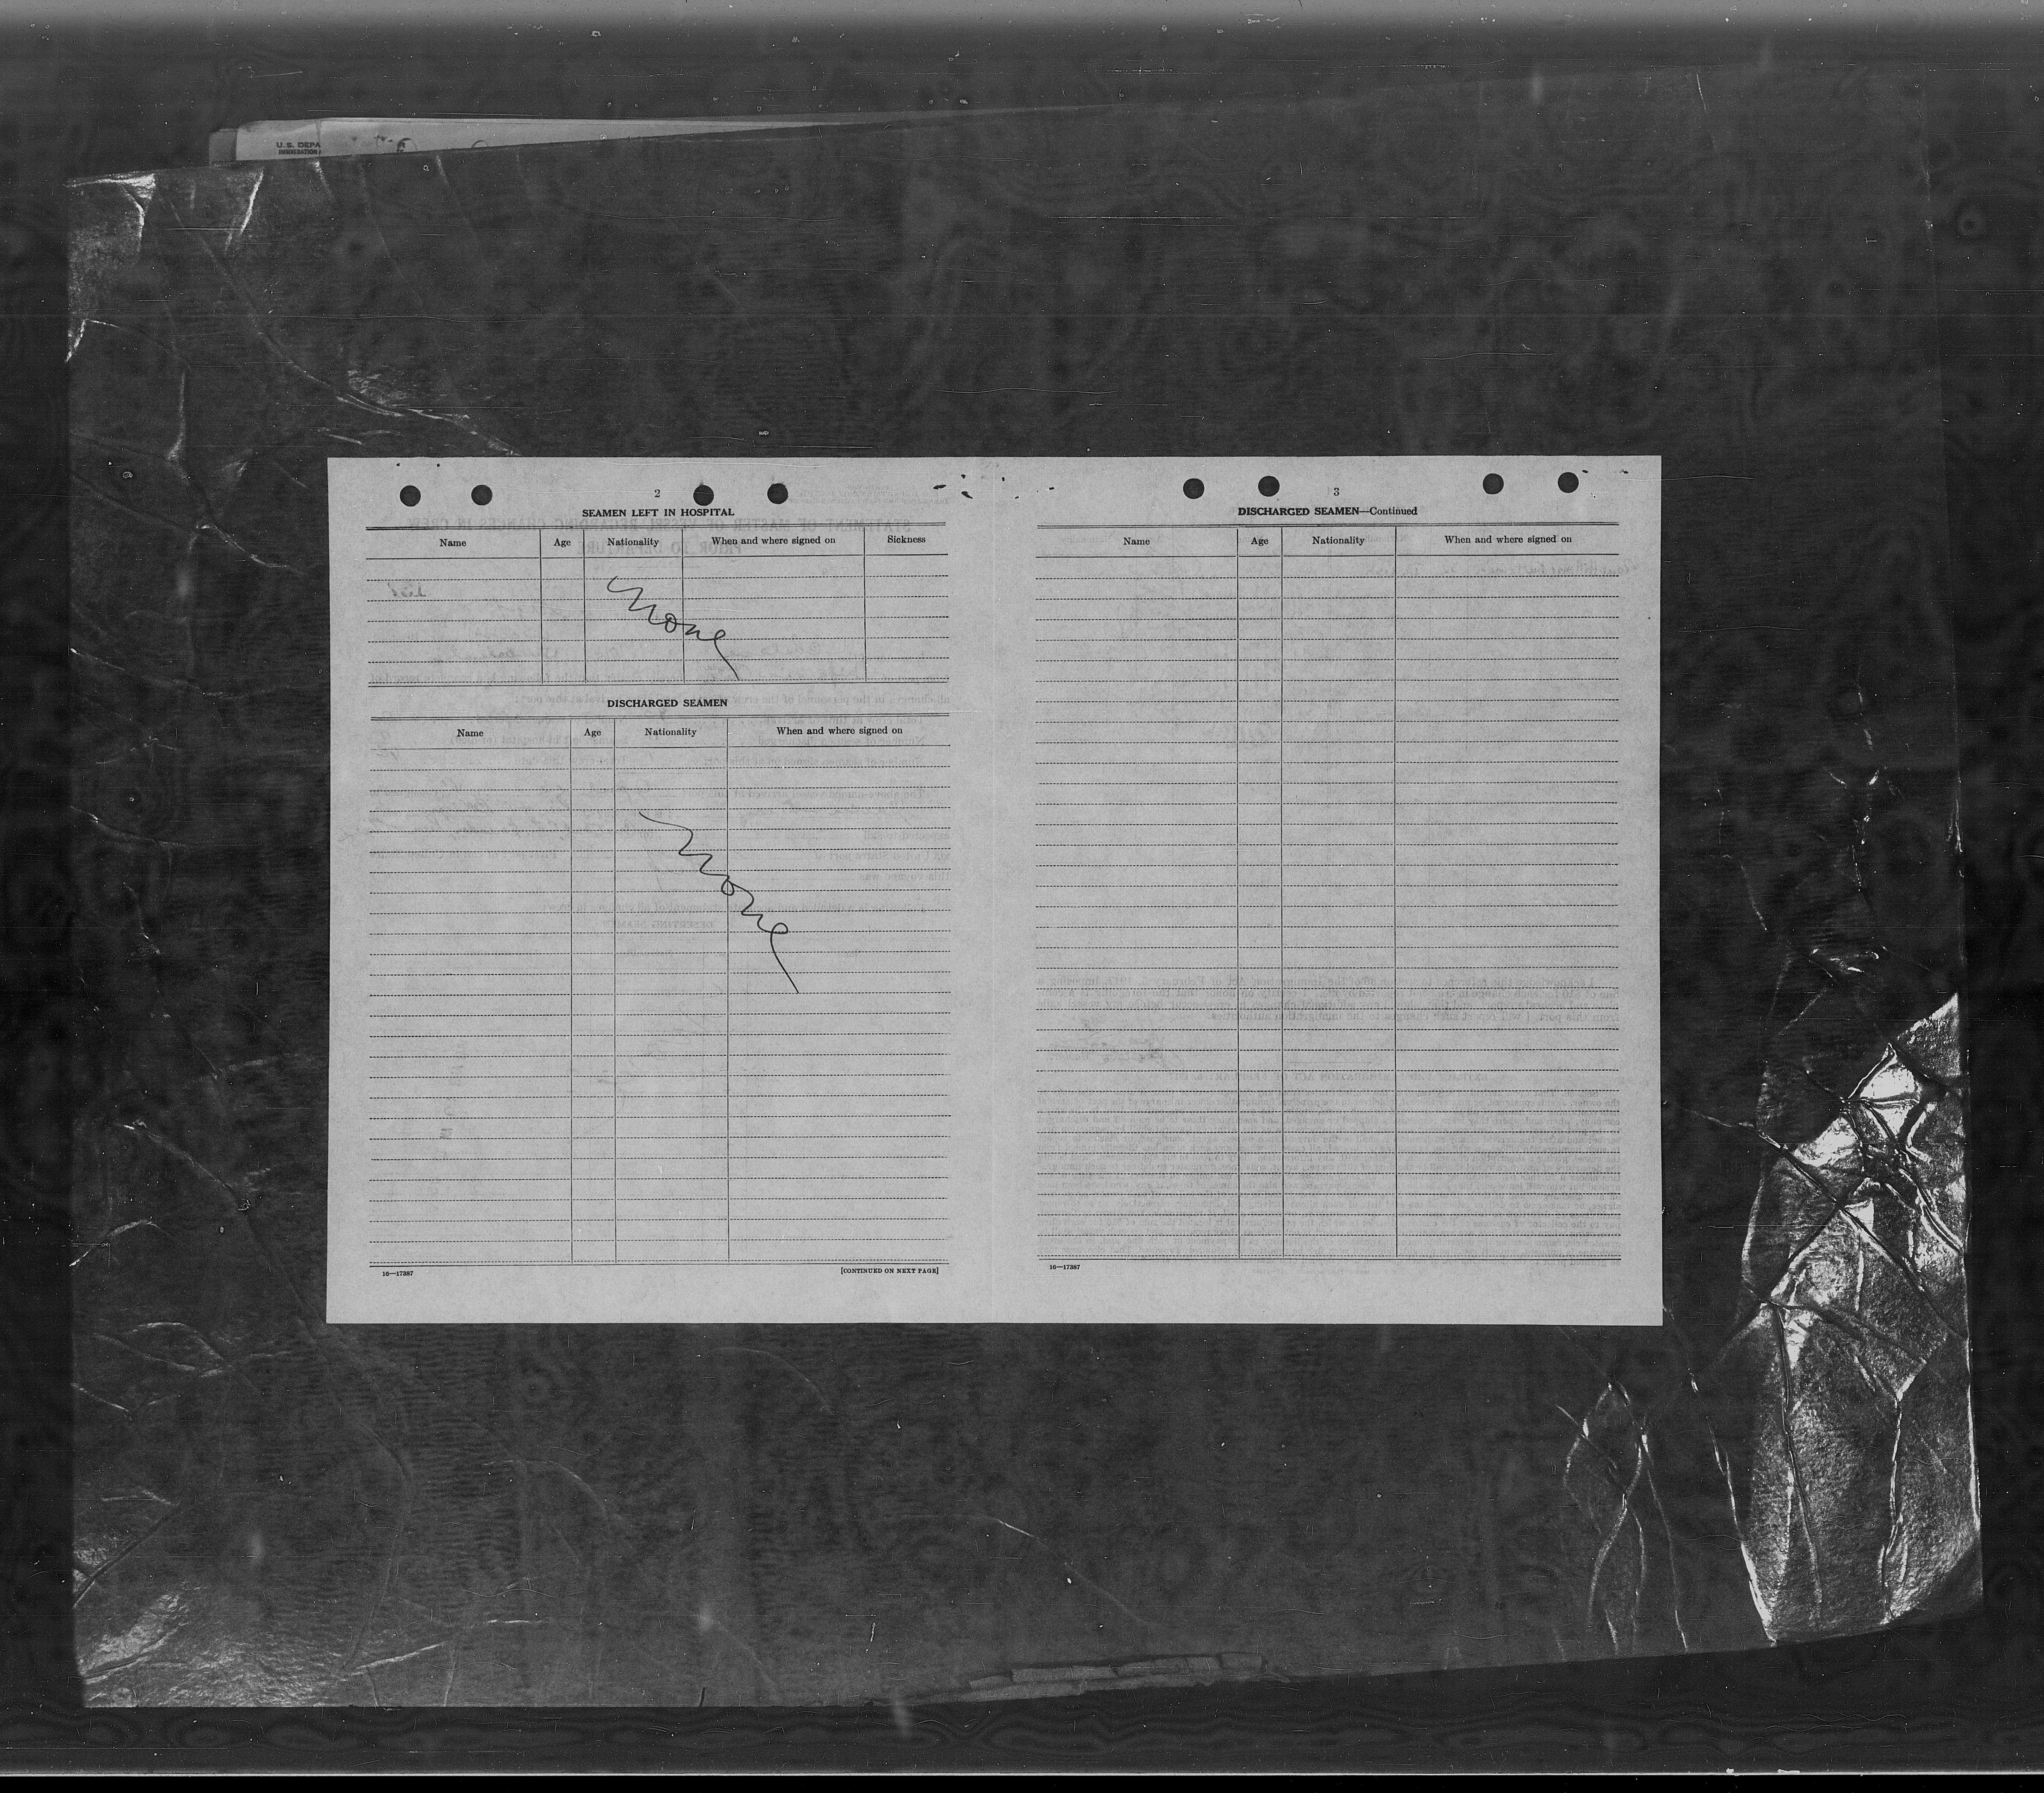 U.S. DEPA
IMMIGRATION
2
SEAMEN LEFT IN HOSPITAL
Name Age Nationality When and where signed on Sickness
None
DISCHARGED SEAMEN
Name Age Nationality When and where signed on
None
16—17387 [CONTINUED ON NEXT PAGE]
3
DISCHARGED SEAMEN—Continued
Name Age Nationality When and where signed on
16—17387